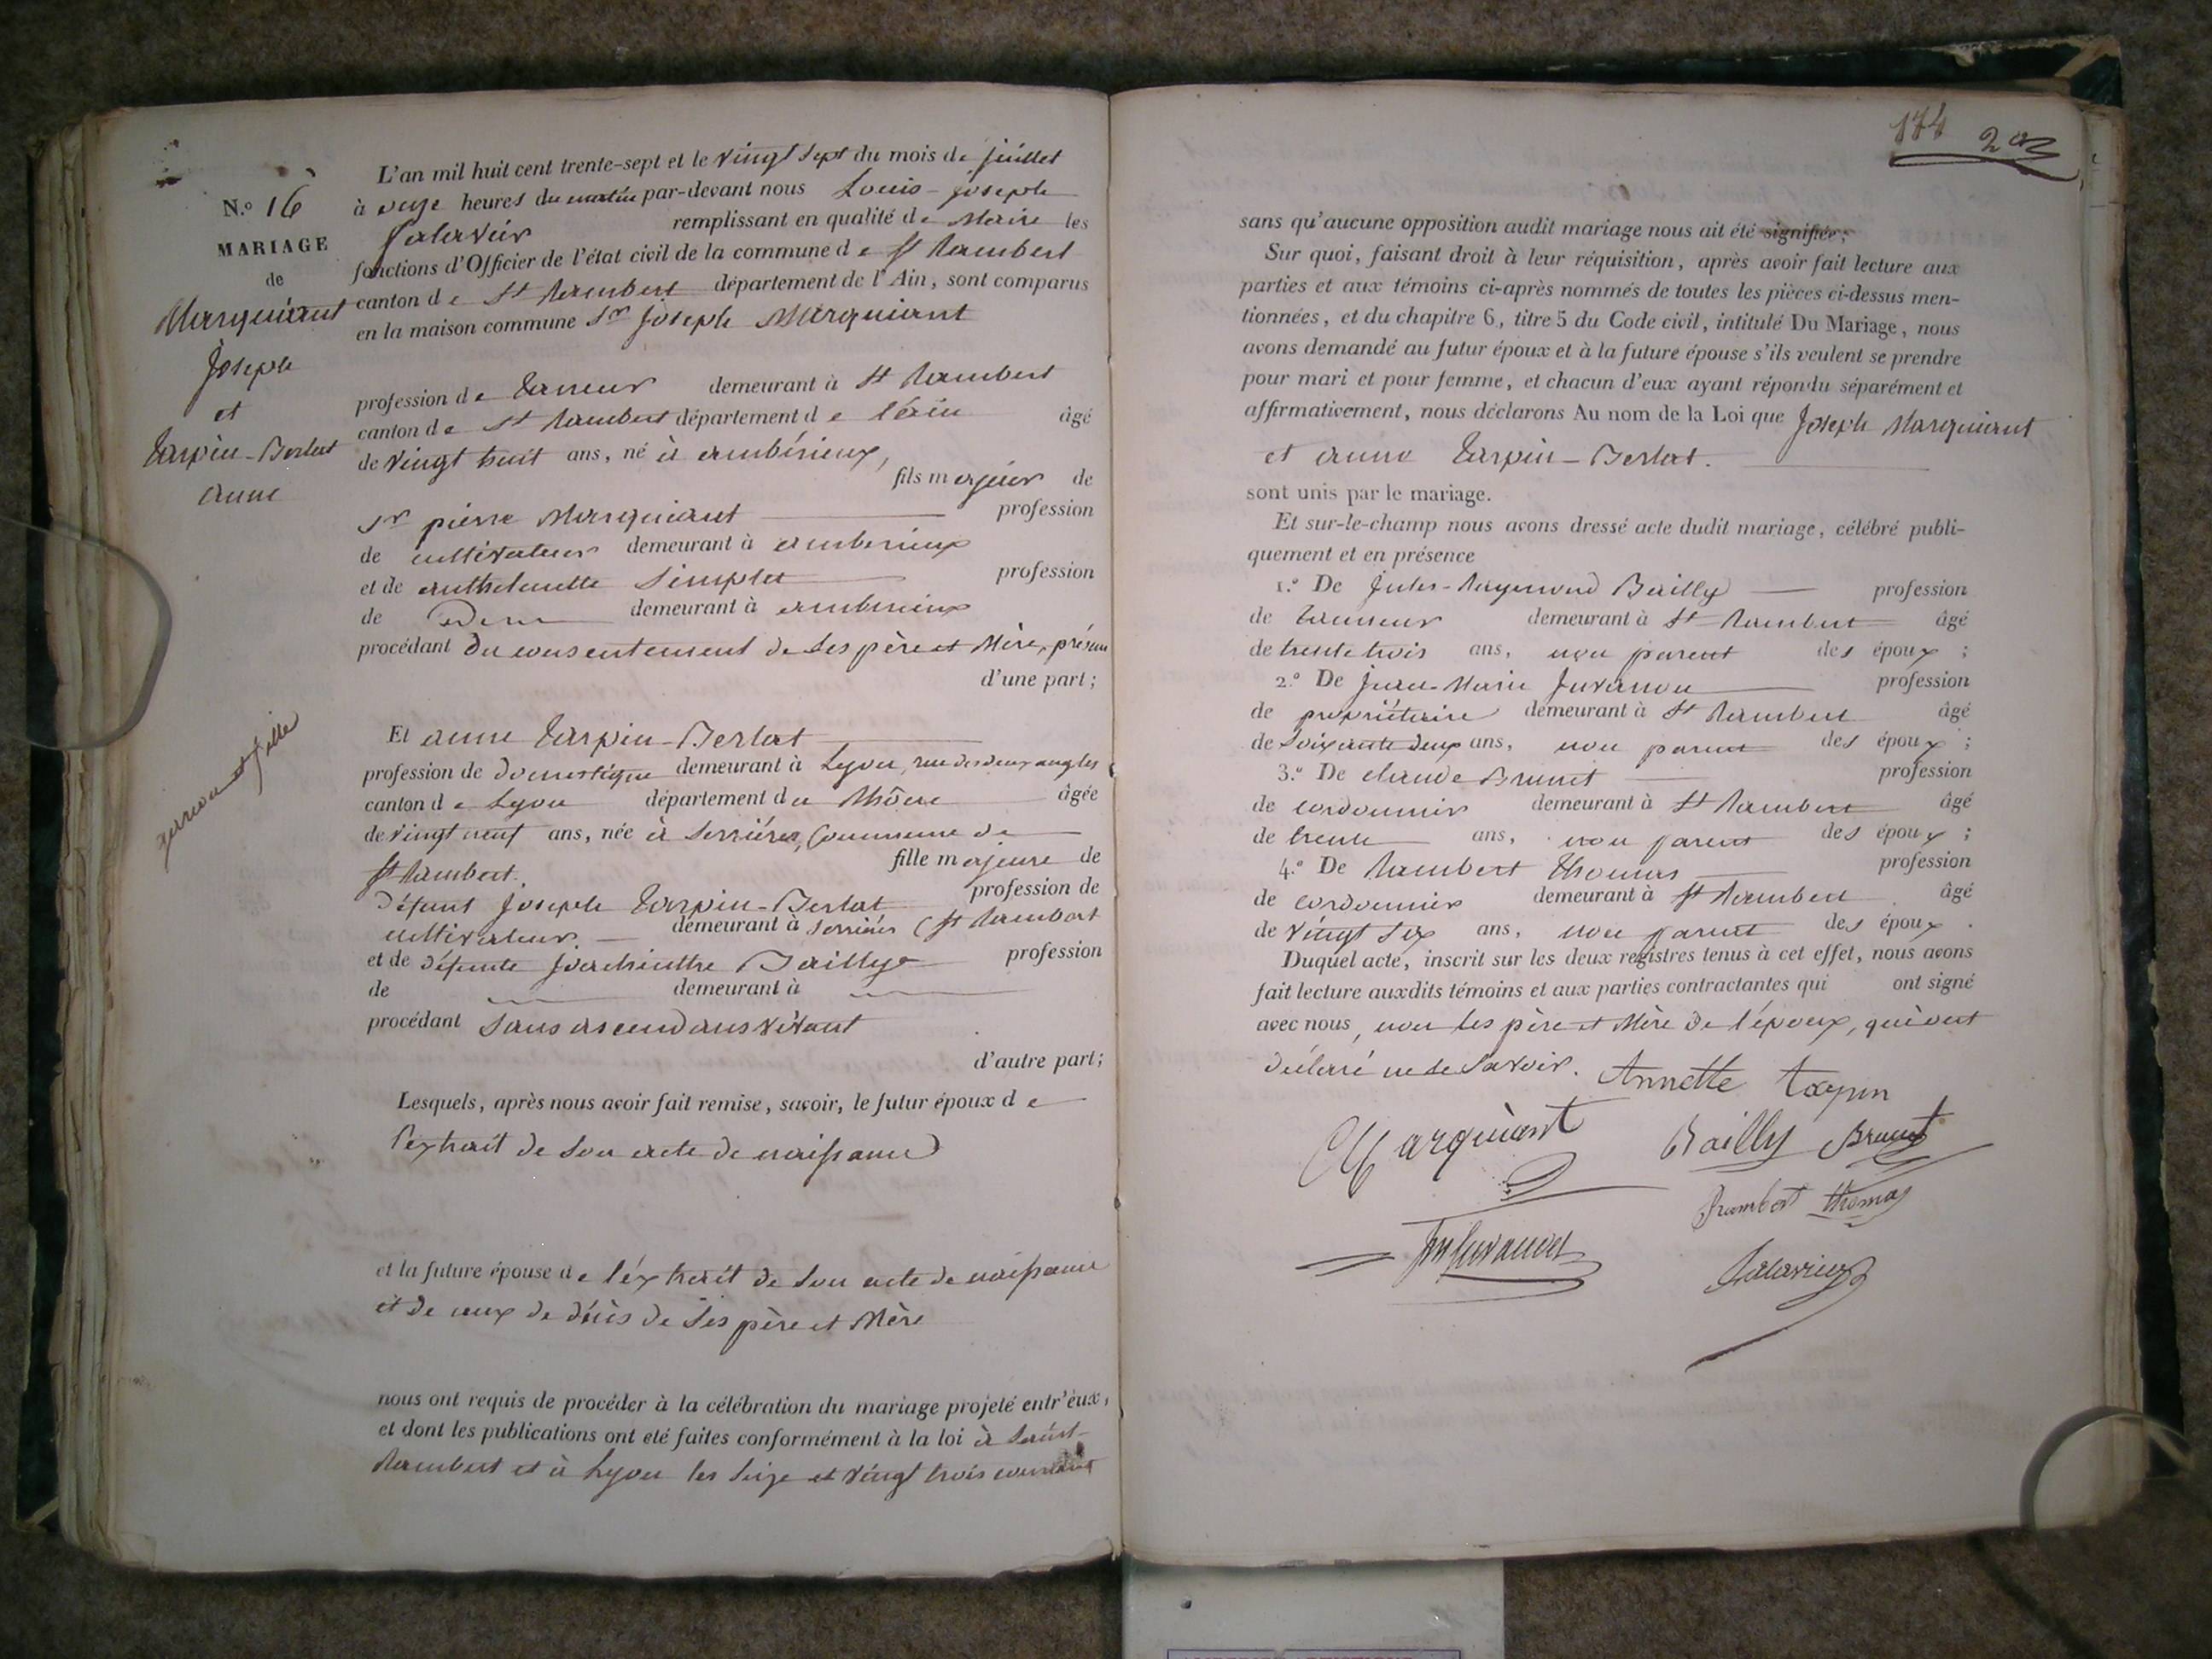 N.º 16
MARIAGE
de
Marquiant
Joseph
et
Tarpin-Berlat
anne
garcon et fille
L'an mil huit cent trente-sept et le vingt sept du mois de juillet
à onze heures du matin par-devant nous Louis-Joseph
remplissant en qualité de Maire les
fonctions d'Officier de l'état civil de la commune de St Rambert
canton de St Rambert département de l'Ain, sont comparus
en la maison commune Sr Joseph Marquiant
profession de tanneur demeurant à St Rambert
canton de St Rambert département de l'ain âgé
de vingt huit ans, né à ambérieux,
fils majeur de
Sr pierre Marquiant profession
de cultivateur demeurant à ambérieux
et de anthelmette Simplet profession
de demeurant à ambérieux
procédant du consentement de ses père et Mère, présens
d'une part;
Et anne Tarpin-Berlat
profession de domestique demeurant à Lyon, rue des deux angles
canton de Lyon département du Rhône âgée
de vingt neuf ans, née à Serrières, Commune de
St Rambert. fille majeure de
défunt Joseph Tarpin-Berlat profession de
cultivateur. demeurant à Serrières (St Rambert
et de défunte Joachinthe Bailly profession
de demeurant à
procédant sans ascendans vivant
d'autre part;
Lesquels, après nous avoir fait remise, savoir, le futur époux de
l'extrait de son acte de naissance
et la future épouse de l'extrait de son acte de naissance
et de ceux de décès de ses père et Mère
nous ont requis de procéder à la célébration du mariage projeté entr'eux,
et dont les publications ont eté faites conformément à la loi à Saint-
Rambert et à Lyon les seize et vingt trois courant
174 2
sans qu'aucune opposition audit mariage nous ait été signifiée;
Sur quoi, faisant droit à leur réquisition, après avoir fait lecture aux
parties et aux témoins ci-après nommés de toutes les pièces ci-dessus men-
tionnées, et du chapitre 6, titre 5 du Code civil, intitulé Du Mariage, nous
avons demandé au futur époux et à la future épouse s'ils veulent se prendre
pour mari et pour femme, et chacun d'eux ayant répondu séparément et
affirmativement, nous déclarons Au nom de la Loi que Joseph Marquiant
et anne Tarpin-Berlat.
sont unis par le mariage.
Et sur-le-champ nous avons dressé acte dudit mariage, célébré publi-
quement et en présence
1.º De Jules-Raymond Bailly profession
de tanneur demeurant à St Rambert âgé
de trente trois ans, non parent des époux ;
2.º De Jean-Marie Juvanon profession
de propriétaire demeurant à St Rambert âgé
de soixante deux ans, non parent des époux ;
3.º De claude Brunet profession
de cordonnier demeurant à St Rambert âgé
de trente ans, non parent des époux ;
4.º De Rambert Thomas profession
de cordonnier demeurant à St Rambert âgé
de vingt six ans, non parent des époux .
Duquel acte, inscrit sur les deux registres tenus à cet effet, nous avons
fait lecture auxdits témoins et aux parties contractantes qui ont signé
avec nous, non les père et Mère de l'époux, qui ont
déclaré ne le savoir. Annette tarpin
Marquiant Bailly Brunet
Rambert thomas